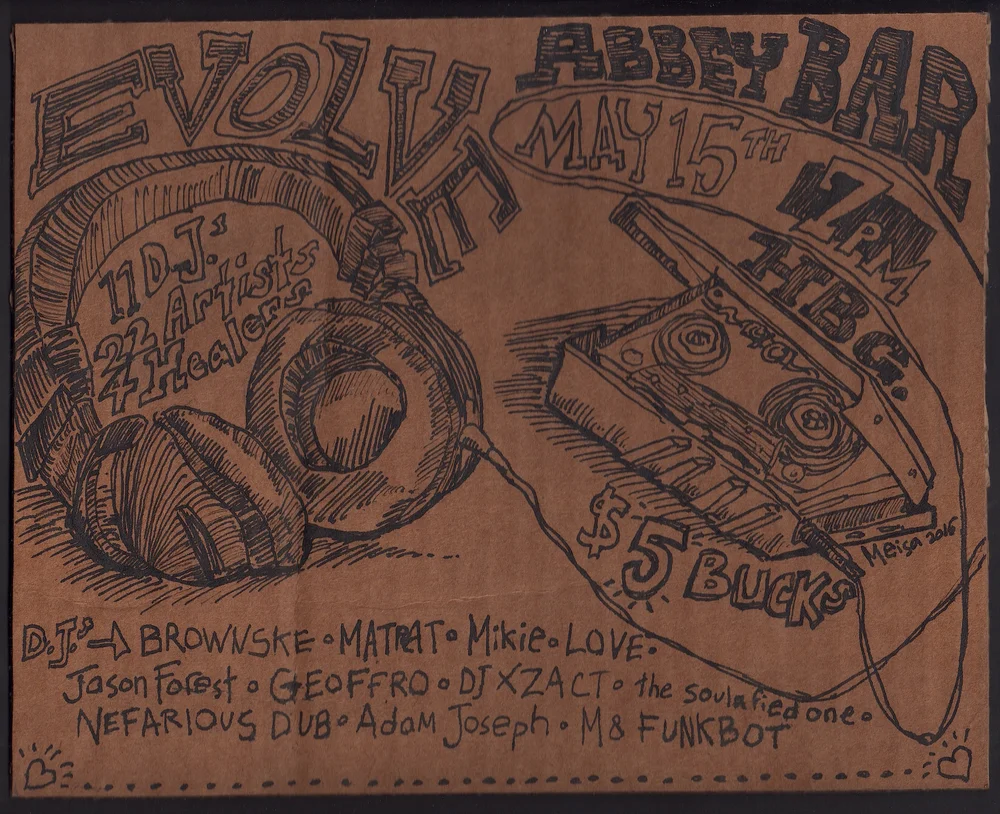 EVOLVE
ABBEY BAR
MAY 15TH
7PM
HBG.
11 D.J.s
22 Artists
4 Healers
$5 BUCKS
Meisa 2016
D.J.s → BROWNSKE • MATRAT • Mikie • LOVE •
Jason Forest • GEOFFRO • DJ XZACT • the soulafied one •
NEFARIOUS DUB • Adam Joseph • M8 FUNKBOT